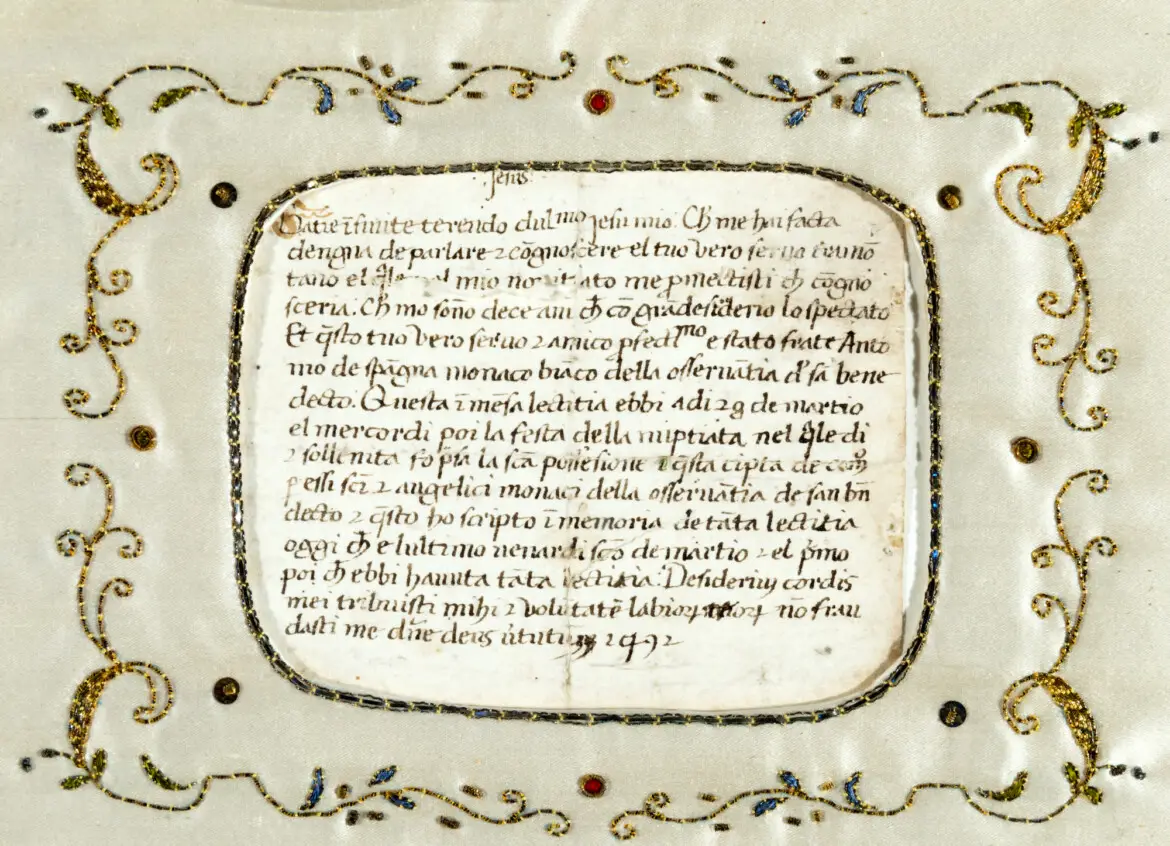 Jesus
Gratie īfinite te rendo dul^mo Jesu mio. Cħ me hai facta
dengna de parlare ⁊ cōgnoscere el tuo vero servo
tano el mio me ꝓmectisti cħ cōgno
sceria. Cħ mo sonō dece ani cħ cō grādesiderio lo spectato
Et q̄sto tuo vero seruo ⁊ amico ꝑfect^mo e stato frate Anto
nio de spāgna monaco biāco della osseruātia d' sā bene
decto. Questa ī mēsa lectitia ebbi adi 29 de martio
el mercordi poi la festa della nuptiata nel q̄le di
⁊ sollenita fo p̄sa la scā possesione ī q̄sta cipta de
pessi scī ⁊ angelici monaci della osseruātia de san bn̄
decto ⁊ q̄sto ho scripto ī memoria de tāta lectitia
oggi cħ e lultimo uenardi scō de martio ⁊ el p̄mo
poi cħ ebbi hauuta tāta lectitia. Desideriuȝ cordis
mei tribuisti mihi ⁊ volūtatē labioꝝ nō frau
dasti me dn̄e deus ūtutuȝ 1492